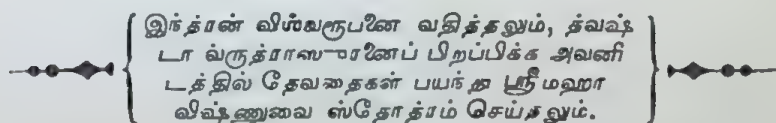 இந்த்ரன் விஶ்வரூபனை வதித்தலும், த்வஷ்
டா வ்ருத்ராஸுரனைப் பிறப்பிக்க அவனி
டத்தில் தேவதைகள் பயந்து ஸ்ரீ மஹா
விஷ்ணுவை ஸ்தோத்ரம் செய்தலும்.